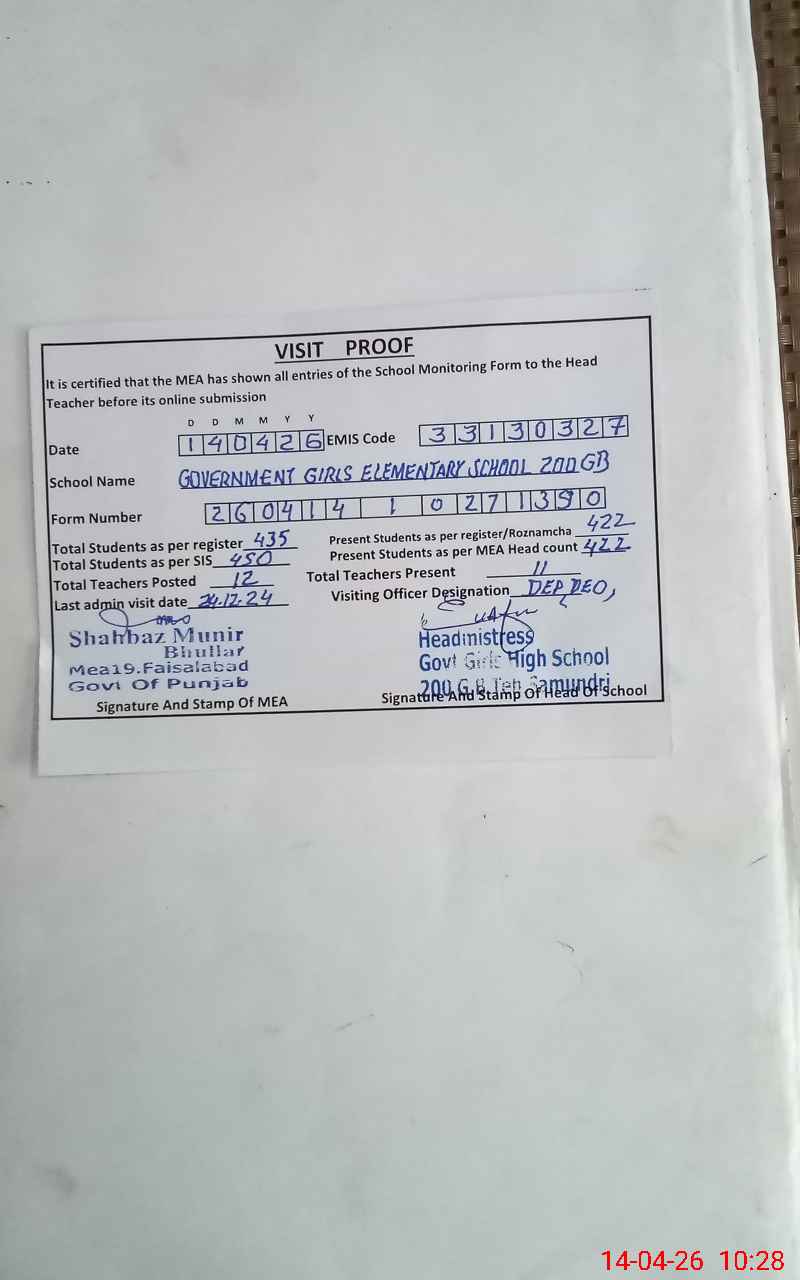 VISIT PROOF
It is certified that the MEA has shown all entries of the School Monitoring Form to the Head
Teacher before its online submission
D D M M Y Y
Date 140426 EMIS Code 33130327
School Name GOVERNMENT GIRLS ELEMENTARY SCHOOL 200 GB
Form Number 260414 1 0271390
Total Students as per register 435 Present Students as per register/Roznamcha 422
Total Students as per SIS 450 Present Students as per MEA Head count 422
Total Teachers Posted 12 Total Teachers Present 11
Last admin visit date 24.12.24 Visiting Officer Designation DEP, DEO,
Shahbaz Munir
Bhullar
Mea19.Faisalabad
Govt Of Punjab
Signature And Stamp Of MEA
Headmistress
Govt Girls High School
200 G.B Teh Samundri
Signature And Stamp Of Head Of School
14-04-26 10:28